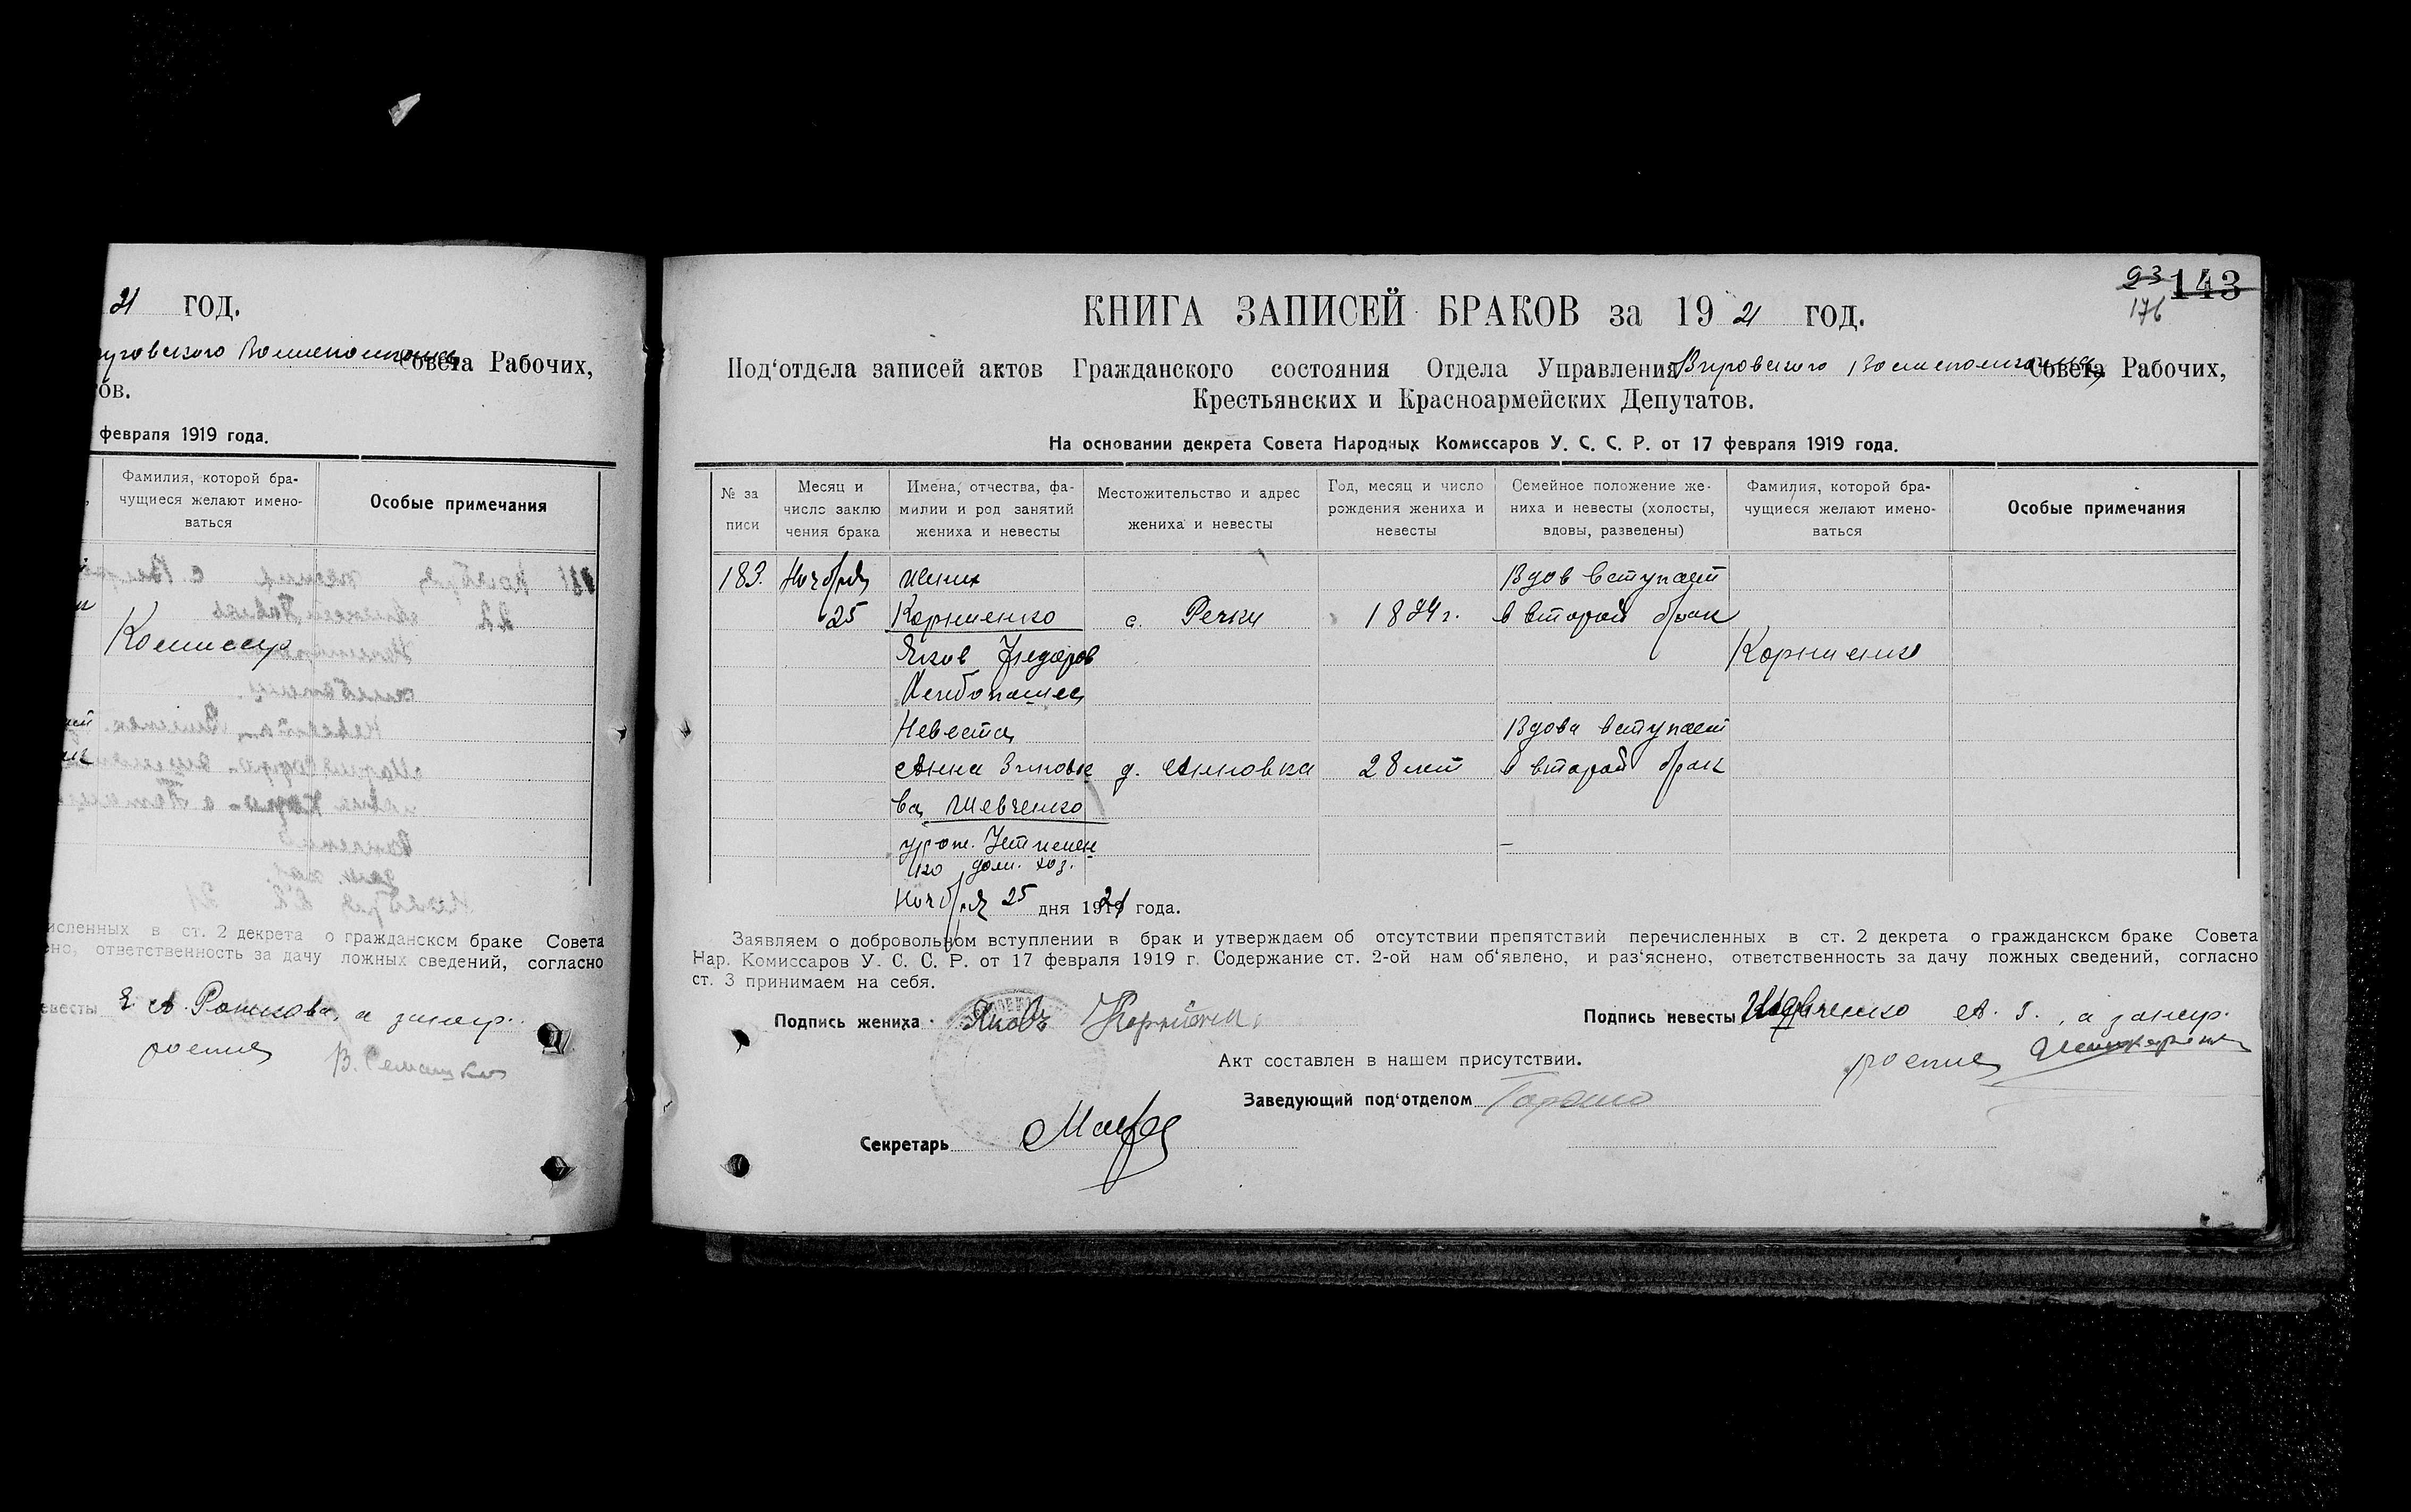 21 ГОД.
Совета Рабочих,
ов.
февраля 1919 года.
Фамилия, которой бра-
чущиеся желают имено-
ваться
Особые примечания
Комиссар
исленных в ст. 2 декрета о гражданском браке Совета
ено, ответственность за дачу ложных сведений, согласно
евесты
В. Семашко
93 143
176
КНИГА ЗАПИСЕЙ БРАКОВ за 1921 год.
Под'отдела записей актов Гражданского состояния Отдела Управления Вировского Волисполкома Совета Рабочих,
Крестьянских и Красноармейских Депутатов.
На основании декрета Совета Народных Комиссаров У. С. С. Р. от 17 февраля 1919 года.
№ за
писи
Месяц и
число заклю
чения брака
Имена, отчества, фа-
милии и род занятий
жениха и невесты
Местожительство и адрес
жениха и невесты
Год, месяц и число
рождения жениха и
невесты
Семейное положение же-
ниха и невесты (холосты,
вдовы, разведены)
Фамилия, которой бра-
чущиеся желают имено-
ваться
Особые примечания
183. Ноября жених Вдов вступает
25 Корниенко с. Речки в второй брак
Яков Федоров Корниенко
Хлебопашец
Невеста Вдова вступает
Анна Зиновье д. Анновка 28 лет в второй брак
ва Шевченко
урож. Устимен
ко дом. хоз.
Ноября 25 дня 1921 года.
Заявляем о добровольном вступлении в брак и утверждаем об отсутствии препятствий перечисленных в ст. 2 декрета о гражданском браке Совета
Нар. Комиссаров У. С. С. Р. от 17 февраля 1919 г. Содержание ст. 2-ой нам об'явлено, и раз'яснено, ответственность за дачу ложных сведений, согласно
ст. 3 принимаем на себя.
Подпись жениха Яковъ
Подпись невесты Шевченко А. З., а за неер.
Акт составлен в нашем присутствии.
Заведующий под'отделом
Секретарь